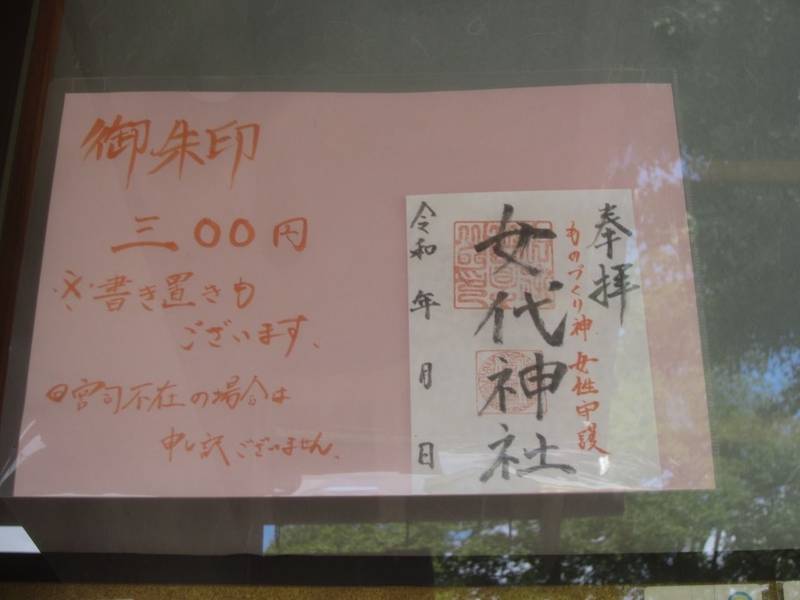 御朱印
三〇〇円
※書き置きも
ございます、
宮司不在の場合は
申し訳ございません、
奉拝
ものづくり神 女性守護
女代神社
令和 年 月 日